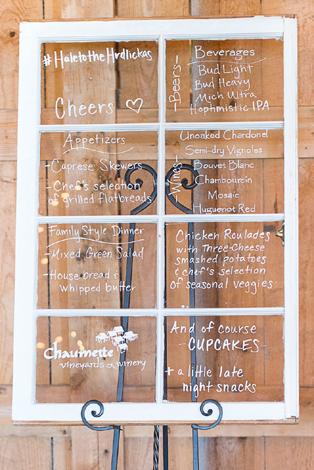 #HaletotheHrdlickas
Cheers ♡
Beverages
-Beers-
Bud Light
Bud Heavy
Mich Ultra
Hoptimistic IPA
Appetizers
-Caprese Skewers
-Chef's selection
of grilled flatbreads
-Wines-
Unoaked Chardonel
Semi-dry Vignoles
Bouvet Blanc
Chambourcin
Mosaic
Huguenot Red
Family Style Dinner
-Mixed Green Salad
-House bread &
whipped butter
Chicken Roulades
with Three-Cheese
smashed potatoes
& chef's selection
of seasonal veggies
Chaumette
vineyards & winery
And of course
-CUPCAKES-
+ a little late
night snacks